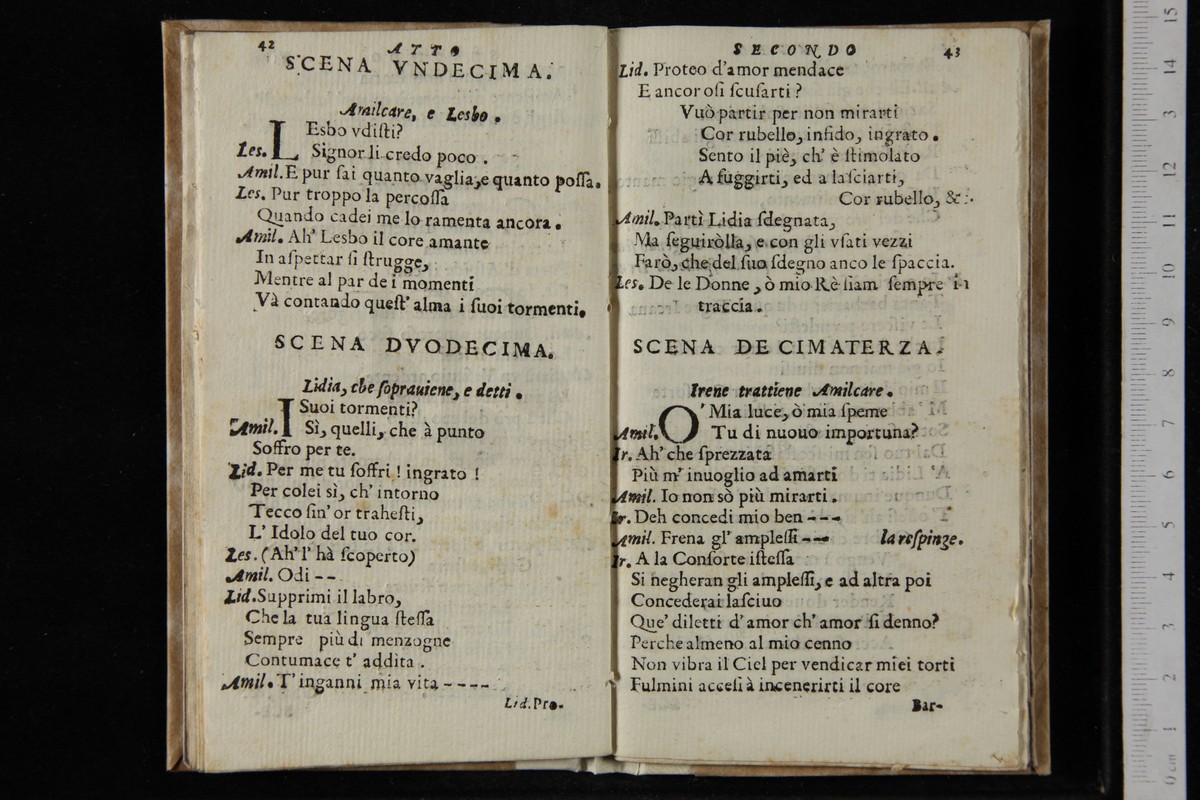 42
ATTO
SCENA VNDECIMA.
Amilcare, e Lesbo.
LEsbo vdiſti?
Les. Signor li credo poco.
Amil. E pur ſai quanto vaglia, e quanto poſſa.
Les. Pur troppo la percoſſa
Quando cadei me lo ramenta ancora.
Amil. Ah' Lesbo il core amante
In aſpettar ſi ſtrugge,
Mentre al par de i momenti
Và contando queſt' alma i ſuoi tormenti.
SCENA DVODECIMA.
Lidia, che ſoprauiene, e detti.
I Suoi tormenti?
Amil. Sì, quelli, che à punto
Soffro per te.
Lid. Per me tu ſoffri! ingrato!
Per colei sì, ch' intorno
Tecco ſin' or traheſti,
L' Idolo del tuo cor.
Les. (Ah' l' hà ſcoperto)
Amil. Odi --
Lid. Supprimi il labro,
Che la tua lingua ſteſſa
Sempre più di menzogne
Contumace t' addita.
Amil. T' inganni mia vita ----
Lid. Pro-
SECONDO
43
Lid. Proteo d'amor mendace
E ancor oſi ſcuſarti?
Vuò partir per non mirarti
Cor rubello, infido, ingrato.
Sento il piè, ch' è ſtimolato
A fuggirti, ed a laſciarti,
Cor rubello, &c.
Amil. Partì Lidia ſdegnata,
Ma ſeguiròlla, e con gli vſati vezzi
Farò, che del ſuo ſdegno anco le ſpaccia.
Les. De le Donne, ò mio Rè ſiam ſempre in
traccia.
SCENA DECIMATERZA.
Irene trattiene Amilcare.
O' Mia luce, ò mia ſpeme
Amil. Tu di nuouo importuna?
Ir. Ah' che ſprezzata
Più m' inuoglio ad amarti
Amil. Io non sò più mirarti.
Ir. Deh concedi mio ben ---
Amil. Frena gl' ampleſſi --- la reſpinge.
Ir. A la Conſorte iſteſſa
Si negheran gli ampleſſi, e ad altra poi
Concederai laſciuo
Que' diletti d' amor ch' amor ſi denno?
Perche almeno al mio cenno
Non vibra il Ciel per vendicar miei torti
Fulmini acceſi à incenerirti il core
Bar-
0 cm 1 2 3 4 5 6 7 8 9 10 11 12 13 14 15